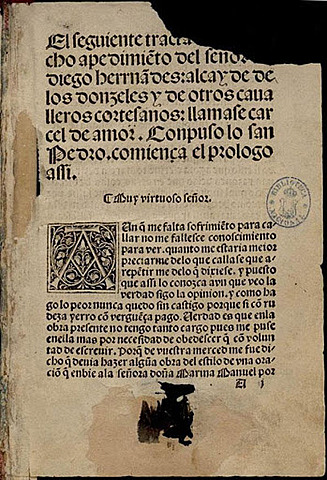 El seguiente tracta
cho apedimiẽto del señor
diego hernãdes: alcayde de
los donzeles y de otros caua
lleros cortesanos: llamase car
cel de amor. Conpuso lo san
Pedro. comiença el prologo
assi.
¶ Muy virtuoso señor.
AUn q̃ me falta sofrimiẽto para ca
llar no me fallesce conoscimiento
para ver. quanto me estaria mejor
preciarme delo que callase que a
repẽtir me delo q̃ dixiese. y puesto
que assi lo conozca avn que veo la
verdad sigo la opinion. y como ha
go lo peor nunca quedo sin castigo porque si cõ ru
deza yerro cõ verguẽça pago. Verdad es que enla
obra presente no tengo tanto cargo pues me puse
en ella mas por necesidad de obedescer q̃ cõ volun
tad de escreuir. Porq̃ de vuestra merced me fue di
cho q̃ deuia hazer algũa obra del estilo de vna ora
ciõ q̃ enbie ala señora doña Marina Manuel por
BIBLIOTECA
NACIONAL